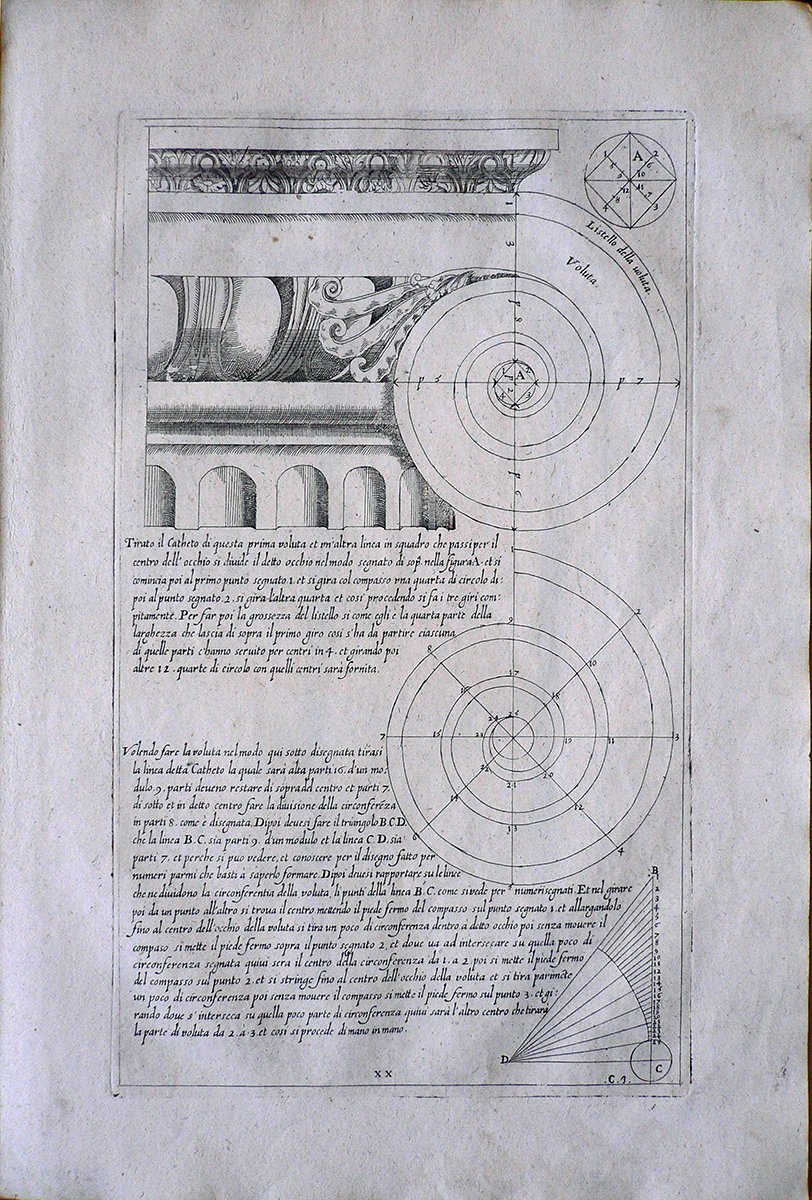 A
1
2
3
4
5
6
7
8
9
10
11
12
Listello della uoluta.
Voluta.
1
3
p 8
A
p 5
p 7
p 6
Tirato il Catheto di questa prima voluta et un'altra linea in squadro che passi per il
centro dell'occhio si diuide il detto occhio nel modo segnato di sop. nella figura A. et si
comincia poi al primo punto segnato 1. et si gira col compasso una quarta di circolo di:
poi al punto segnato 2. si gira l'altra quarta et cosi procedendo si fa i tre giri com-
pitamente. Per far poi la grossezza del listello si come egli è la quarta parte della
larghezza che lascia di sopra il primo giro cosi s'ha da partire ciascuna
di quelle parti c'hanno seruito per centri in 4. et girando poi
altre 12. quarte di circolo con quelli centri sarà fornita.
1
2
9
8
10
17
16
18
24
25
7
15
23
19
11
3
22
20
21
14
12
13
6
4
5
Volendo fare la voluta nel modo qui sotto disegnata tirasi
la linea detta Catheto la quale sarà alta parti 16. d'un mo:
dulo. 9. parti deueno restare di sopra del centro et parti 7.
di sotto et in detto centro fare la diuisione della circonferēza
in parti 8. come è disegnata. Dipoi deuesi fare il triangolo B.C.D.
che la linea B.C. sia parti 9. d'un modulo et la linea C.D. sia
parti 7. et perche si puo vedere, et conoscere per il disegno fatto per
numeri parmi che basti à saperlo formare. Dipoi deuesi rapportare su le linee
che ne diuidono la circonferentia della voluta, li punti della linea B.C. come si vede per numeri segnati. Et nel girare
poi da un punto all'altro si troua il centro mettendo il piede fermo del compasso sul punto segnato 1. et allargandolo
fino al centro dell'occhio della voluta si tira un poco di circonferenza dentro a detto occhio poi senza mouere il
compaso si mette il piede fermo sopra il punto segnato 2. et doue ua ad intersecare su quella poco di
circonferenza segnata quiui sera il centro della circonferenza da 1. a 2. poi si mette il piede fermo
del compasso sul punto 2. et si stringe fino al centro dell'occhio della voluta et si tira parimēte
un poco di circonferenza poi senza mouere il compasso si mette il piede fermo sul punto 3. et gi:
rando doue s'interseca su quella poco parte di circonferenza quiui sarà l'altro centro che tirarà
la parte di voluta da 2. a 3. et cosi si procede di mano in mano.
B
1
2
3
4
5
6
7
8
9
10
D
C
.C.9.
XX